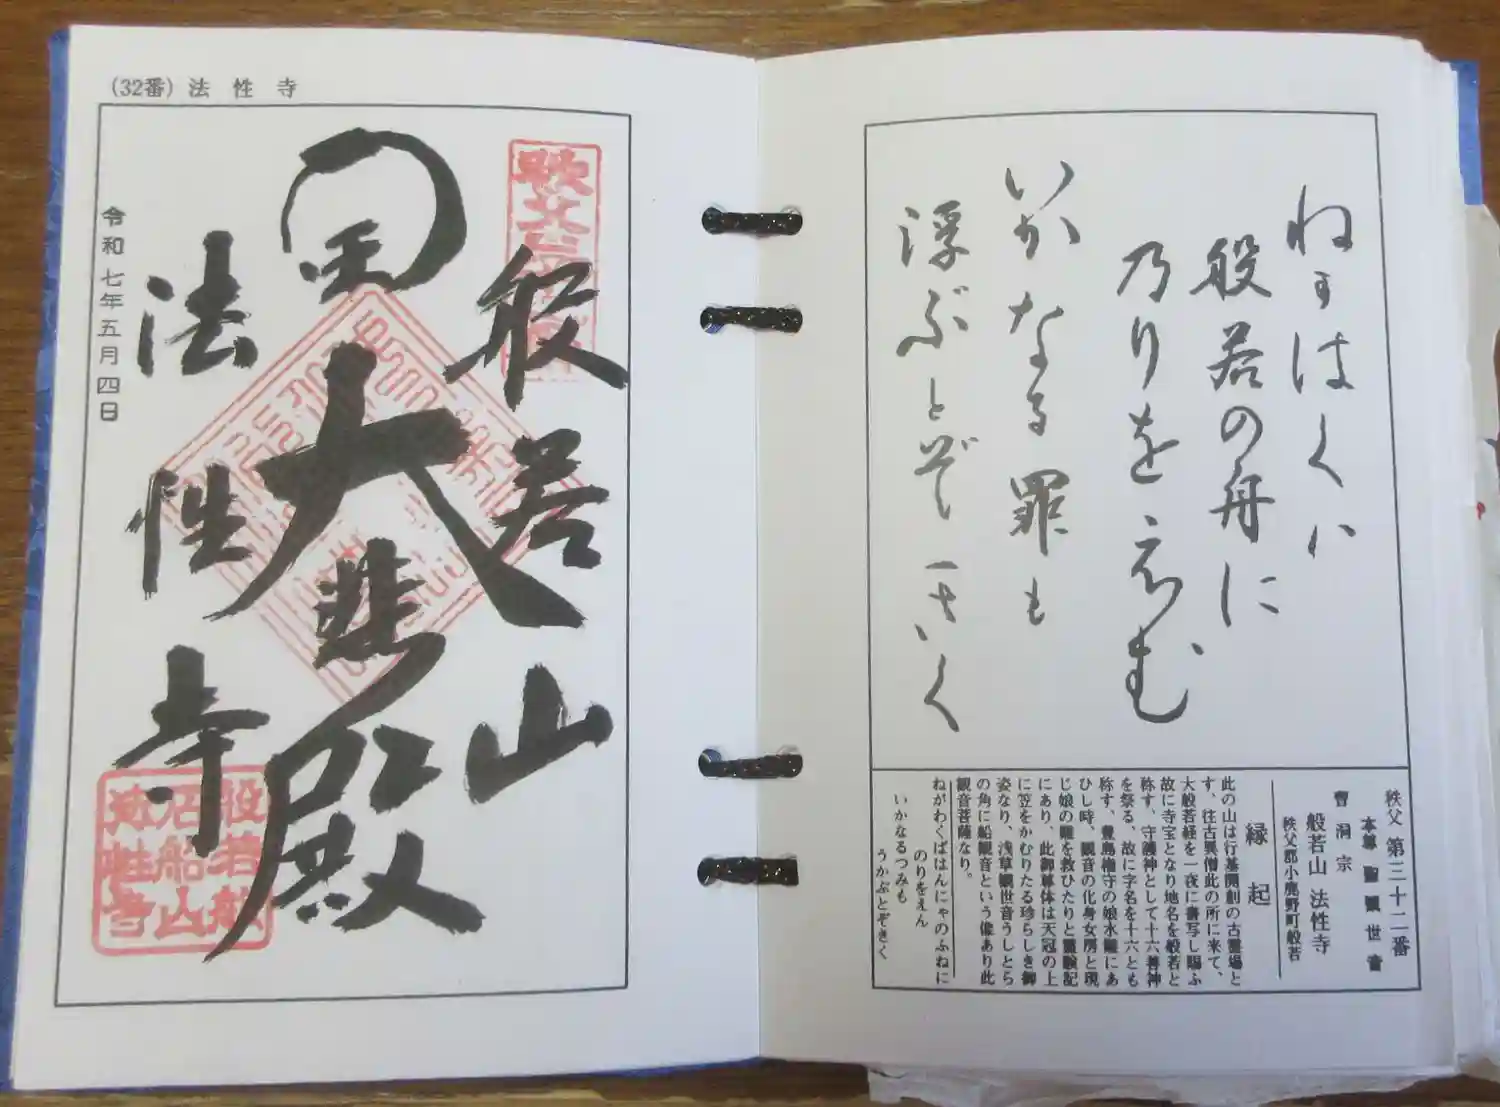 ねかはくハ
般若の舟に
乃りをえむ
いかなる罪も
浮ぶとぞきく
秩父 第三十二番
本尊 聖観世音
曹洞宗
般若山 法性寺
秩父郡小鹿野町般若
縁起
此の山は行基開創の古霊場と
す、往古異僧此の所に来て、
大般若経を一夜に書写し賜ふ
故に寺宝となり地名を般若と
称す、守護神として十六善神
を祭る、故に字名を十六とも
称す、豊島権守の娘水難にあ
ひし時、観音の化身女房と現
じ娘の難を救ひたりと霊験記
にあり、此御尊体は天冠の上
に笠をかむりたる珍らしき御
姿なり、浅草観世音うしとら
の角に船観音という像あり此
観音菩薩なり。
ねがわくばはんにゃのふねに
のりをえん
いかなるつみも
うかぶとぞきく
(32番) 法性寺
般若山
大悲殿
法性寺
令和七年五月四日
般若山
石船山
法性寺